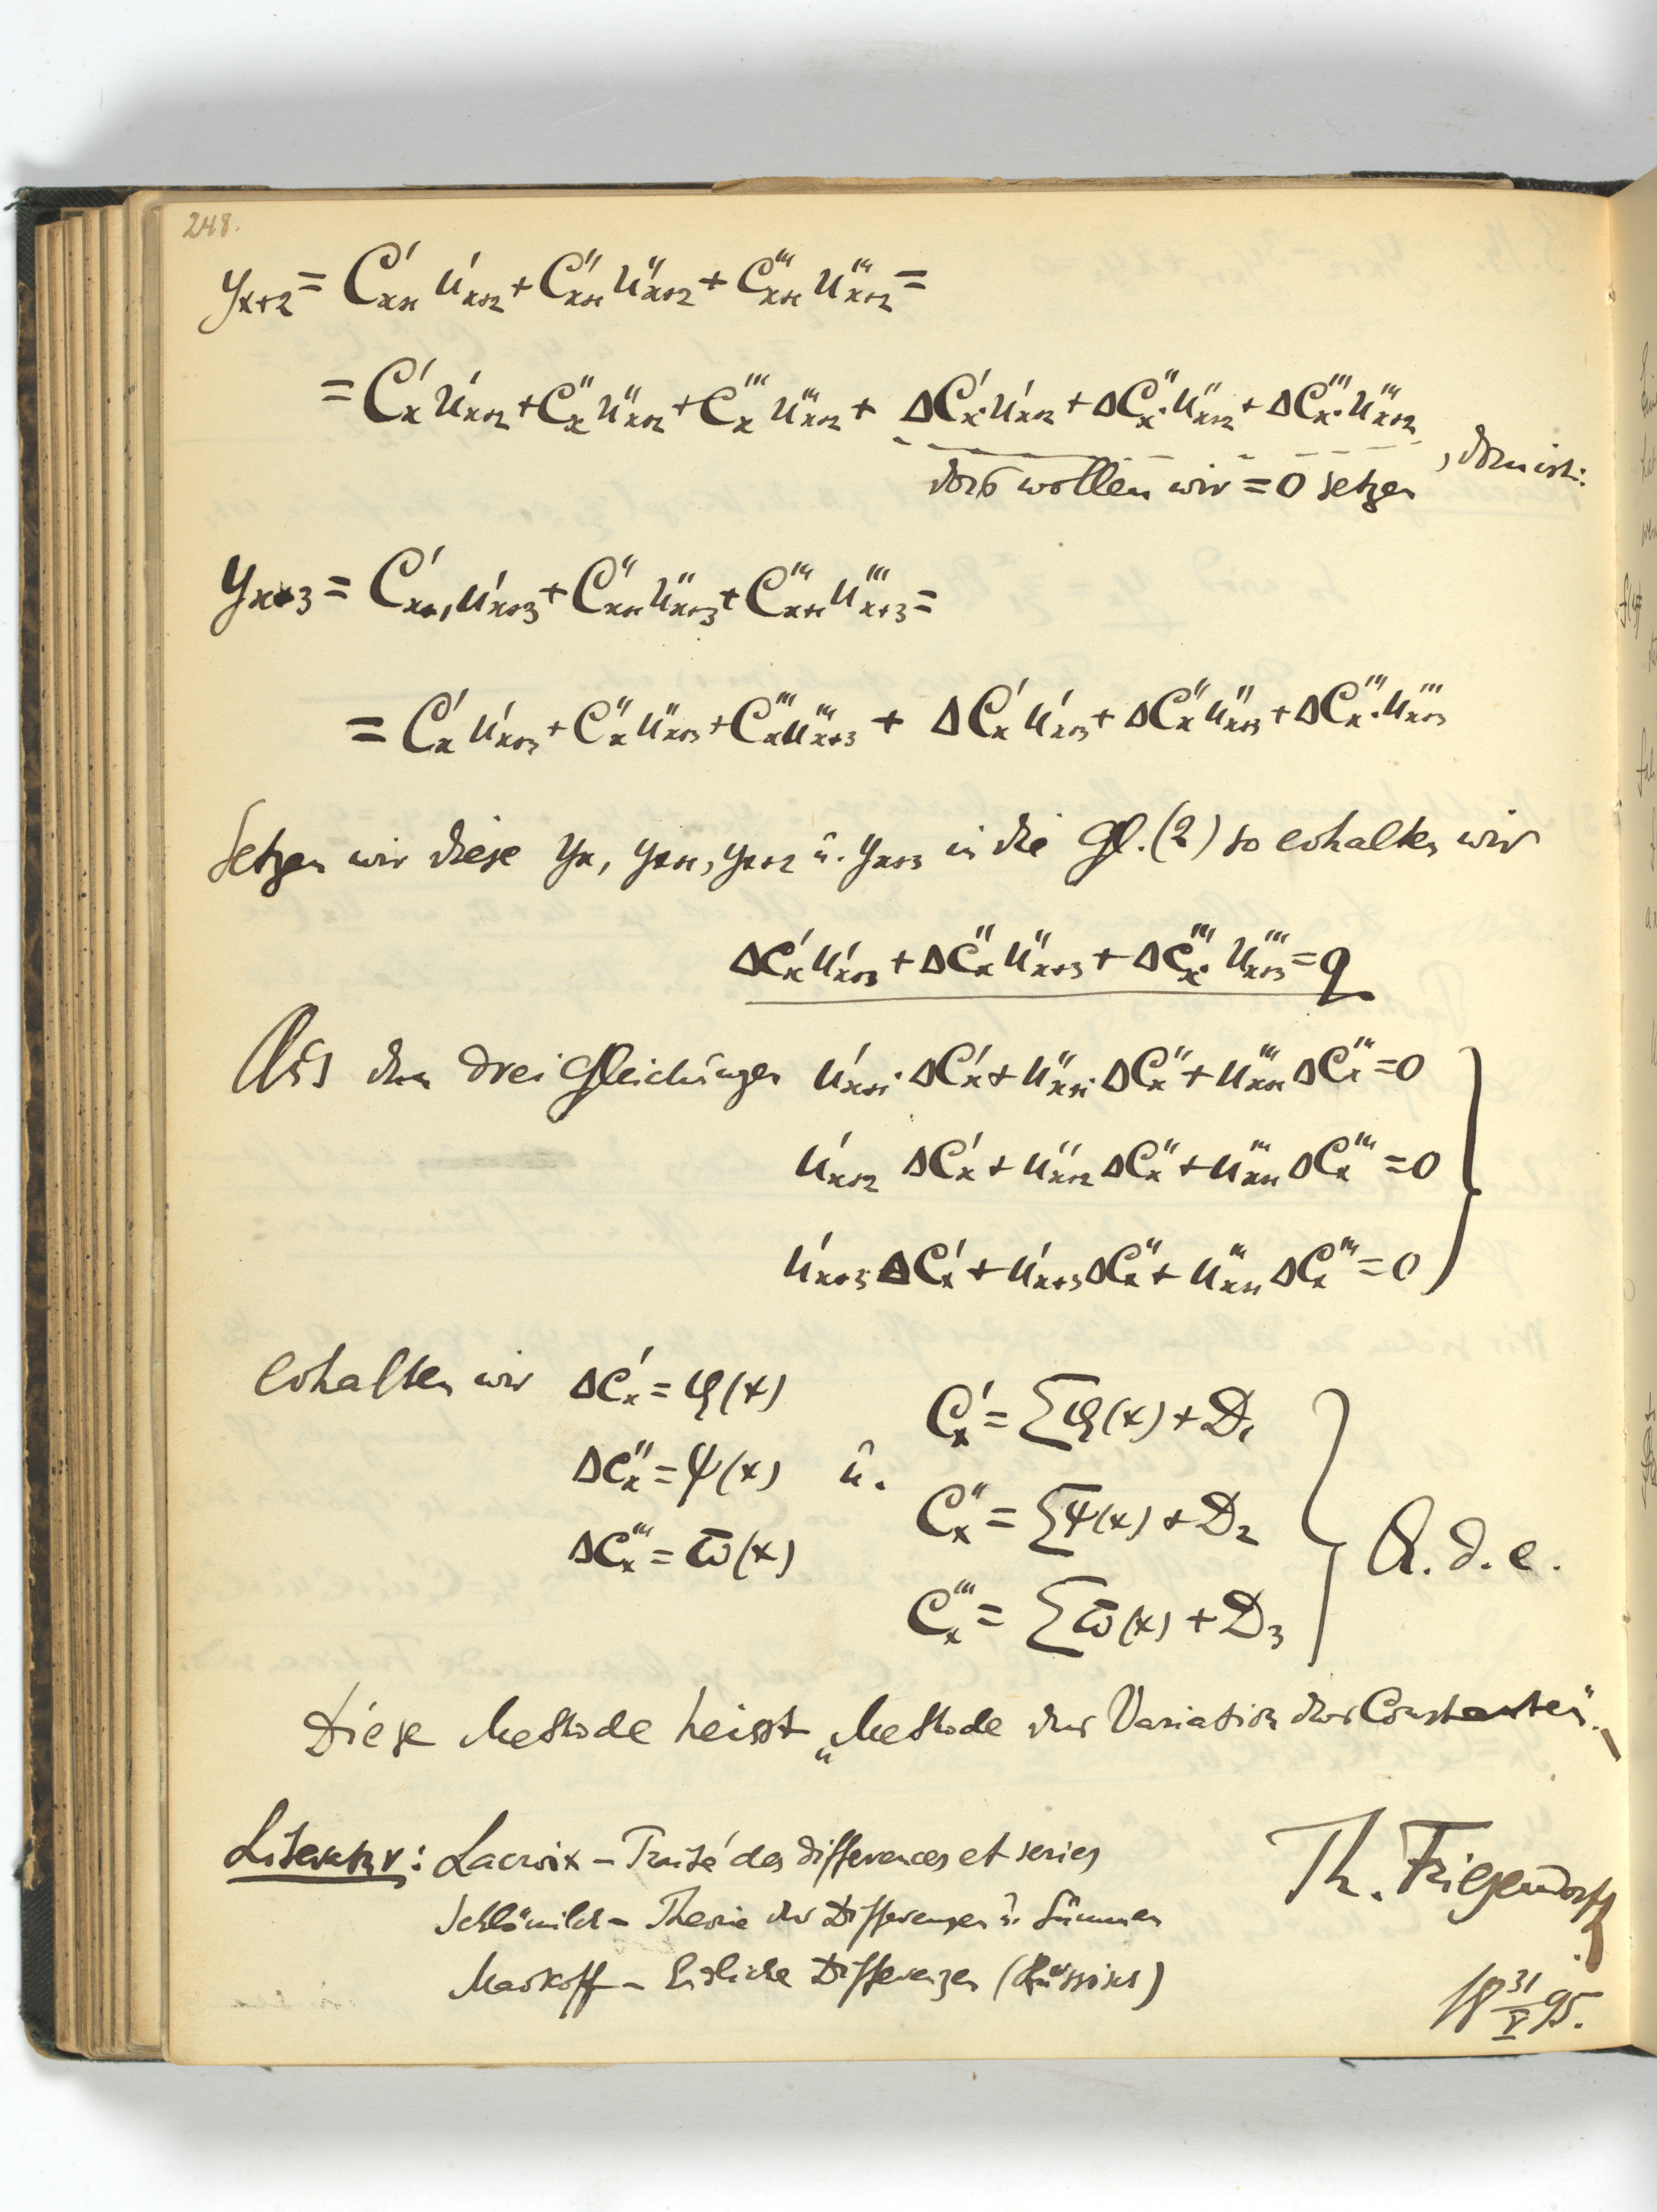 248.
y_{x+2} = C'_{x+1} u'_{x+2} + C''_{x+1} u''_{x+2} + C'''_{x+1} u'''_{x+2} =
= C'_x u'_{x+2} + C''_x u''_{x+2} + C'''_x u'''_{x+2} + ΔC'_x · u'_{x+2} + ΔC''_x · u''_{x+2} + ΔC'''_x · u'''_{x+2}
das wollen wir = 0 setzen , dann ist:
y_{x+3} = C'_{x+1} u'_{x+3} + C''_{x+1} u''_{x+3} + C'''_{x+1} u'''_{x+3} =
= C'_x u'_{x+3} + C''_x u''_{x+3} + C'''_x u'''_{x+3} + ΔC'_x u'_{x+3} + ΔC''_x u''_{x+3} + ΔC'''_x · u'''_{x+3}
Setzen wir diese y_x, y_{x+1}, y_{x+2} u. y_{x+3} in die Gl. (2) so erhalten wir
ΔC'_x u'_{x+3} + ΔC''_x u''_{x+3} + ΔC'''_x · u'''_{x+3} = q
Aus den drei Gleichungen u'_{x+1} · ΔC'_x + u''_{x+1} · ΔC''_x + u'''_{x+1} ΔC'''_x = 0
u'_{x+2} ΔC'_x + u''_{x+2} ΔC''_x + u'''_{x+1} ΔC'''_x = 0
u'_{x+3} ΔC'_x + u'_{x+3} ΔC''_x + u'''_{x+1} ΔC'''_x = 0
erhalten wir ΔC'_x = φ(x) C'_x = Σφ(x) + D_1
ΔC''_x = ψ(x) u. C''_x = Σψ(x) + D_2
ΔC'''_x = ϖ(x) C'''_x = Σϖ(x) + D_3
Q. d. e.
Diese Methode heisst „Methode der Variation der Constanten". –
Literatur: Lacroix – Traité des differences et series
Schlömilch – Theorie der Differenzen u. Summen
Markoff – Endliche Differenzen (Russisch)
Th. Friesendorff
18 31/V 95.